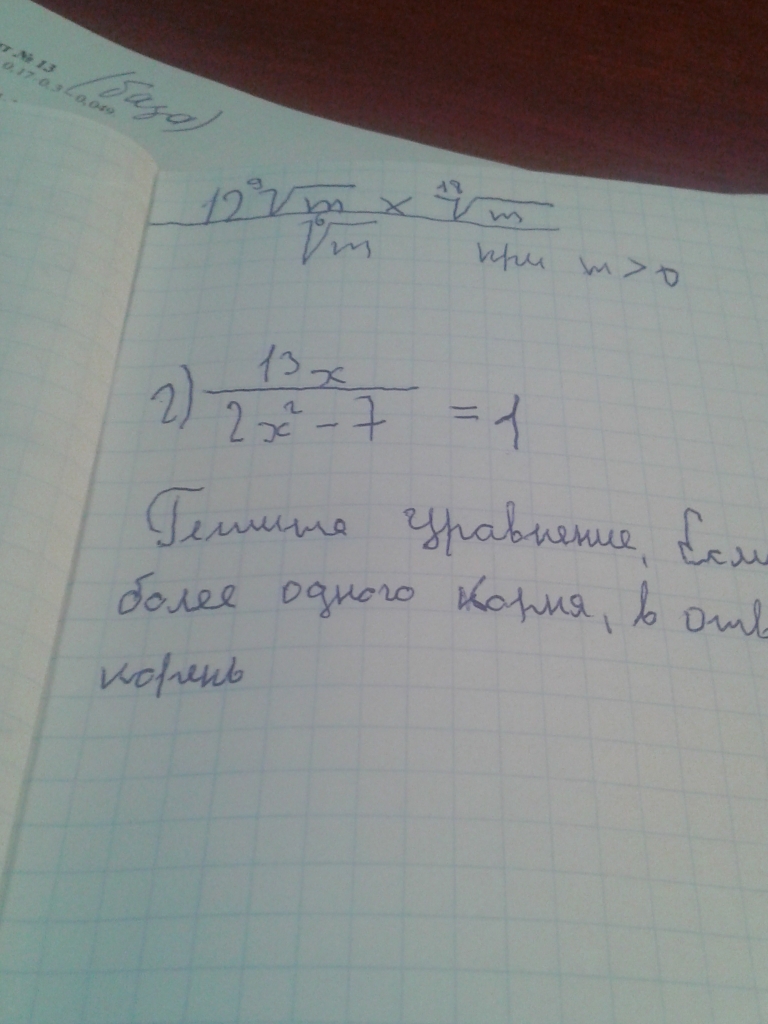 № 13
0,17·0,3 - 0,049
(база)
12 ⁹√m × ¹⁸√m
⁶√m при m > 0
2) 13x
2x² - 7 = 1
Решите уравнение. Если
более одного корня, в отв
корень